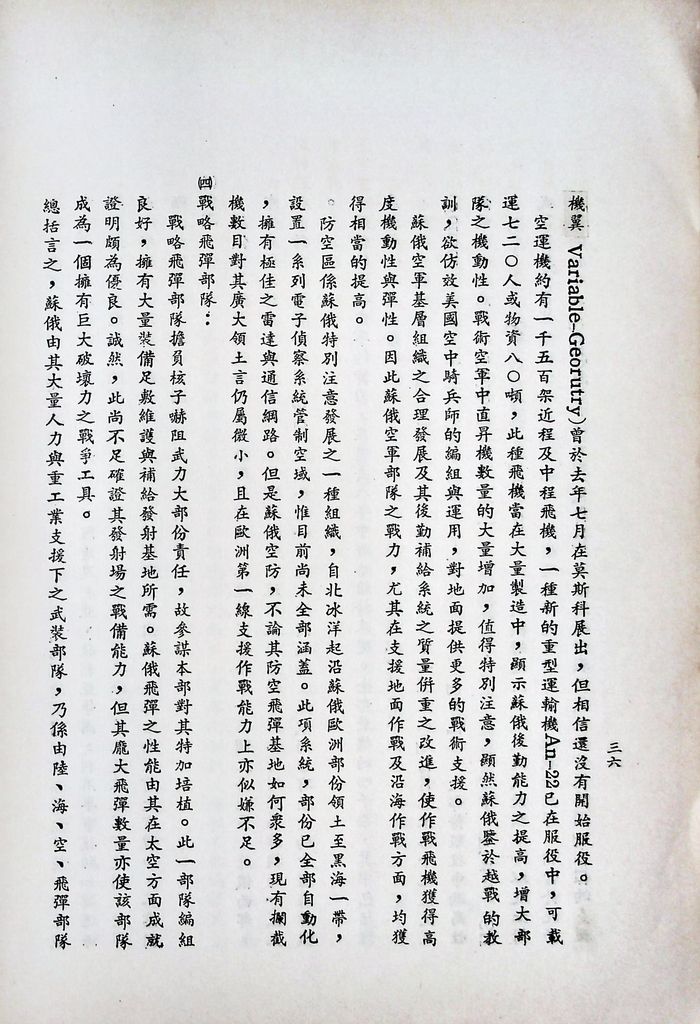 三六
機翼 Variable-Georutry)曾於去年七月在莫斯科展出，但相信還沒有開始服役。
空運機約有一千五百架近程及中程飛機，一種新的重型運輸機An-22已在服役中，可載
運七二〇人或物資八〇噸，此種飛機當在大量製造中，顯示蘇俄後勤能力之提高，增大部
隊之機動性。戰術空軍中直昇機數量的大量增加，值得特別注意，顯然蘇俄鑒於越戰的教
訓，欲仿效美國空中騎兵師的編組與運用，對地面提供更多的戰術支援。
蘇俄空軍基層組織之合理發展及其後勤補給系統之質量併重之改進，使作戰飛機獲得高
度機動性與彈性。因此蘇俄空軍部隊之戰力，尤其在支援地面作戰及沿海作戰方面，均獲
得相當的提高。
防空區係蘇俄特別注意發展之一種組織，自北冰洋起沿蘇俄歐洲部份領土至黑海一帶，
設置一系列電子偵察系統管制空域，惟目前尚未全部涵蓋。此項系統，部份已全部自動化
，擁有極佳之雷達與通信網路。但是蘇俄空防，不論其防空飛彈基地如何衆多，現有攔截
機數目對其廣大領土言仍屬微小，且在歐洲第一線支援作戰能力上亦似嫌不足。
㈣戰略飛彈部隊：
戰略飛彈部隊擔負核子嚇阻武力大部份責任，故參謀本部對其特加培植。此一部隊編組
良好，擁有大量裝備足敷維護與補給發射基地所需。蘇俄飛彈之性能由其在太空方面成就
證明頗為優良。誠然，此尚不足確證其發射場之戰備能力，但其龐大飛彈數量亦使該部隊
成為一個擁有巨大破壞力之戰爭工具。
總括言之，蘇俄由其大量人力與重工業支援下之武裝部隊，乃係由陸、海、空、飛彈部隊